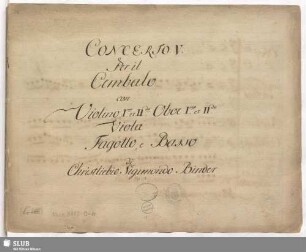 CONCERTO V.
Per il
Cembalo
con
Violino Imo et IIdo Oboe Imo et IIdo
Viola
Fagotto e Basso
di
Christliebio Sigismondo Binder
SLUB